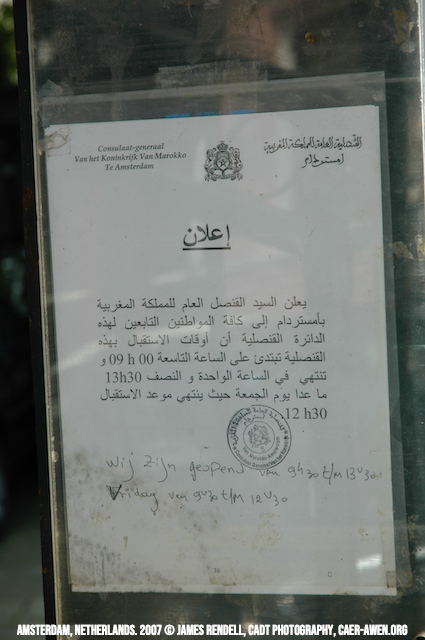 Consulaat-generaal
Van het Koninkrijk Van Marokko
Te Amsterdam
القنصلية العامة للمملكة المغربية
امستردام
إعلان
يعلن السيد القنصل العام للمملكة المغربية
بأمستردام إلى كافة المواطنين التابعين لهذه
الدائرة القنصلية أن أوقات الاستقبال بهذه
القنصلية تبتدئ على الساعة التاسعة 00 h 09 و
تنتهي في الساعة الواحدة و النصف 13h30
ما عدا يوم الجمعة حيث ينتهي موعد الاستقبال
12 h30.
Wij zijn geopend van 9h30 t/m 13u30
Vrijdag van 9u30 t/m 12u30
AMSTERDAM, NETHERLANDS. 2007 © JAMES RENDELL, CADT PHOTOGRAPHY, CAER-AWEN.ORG